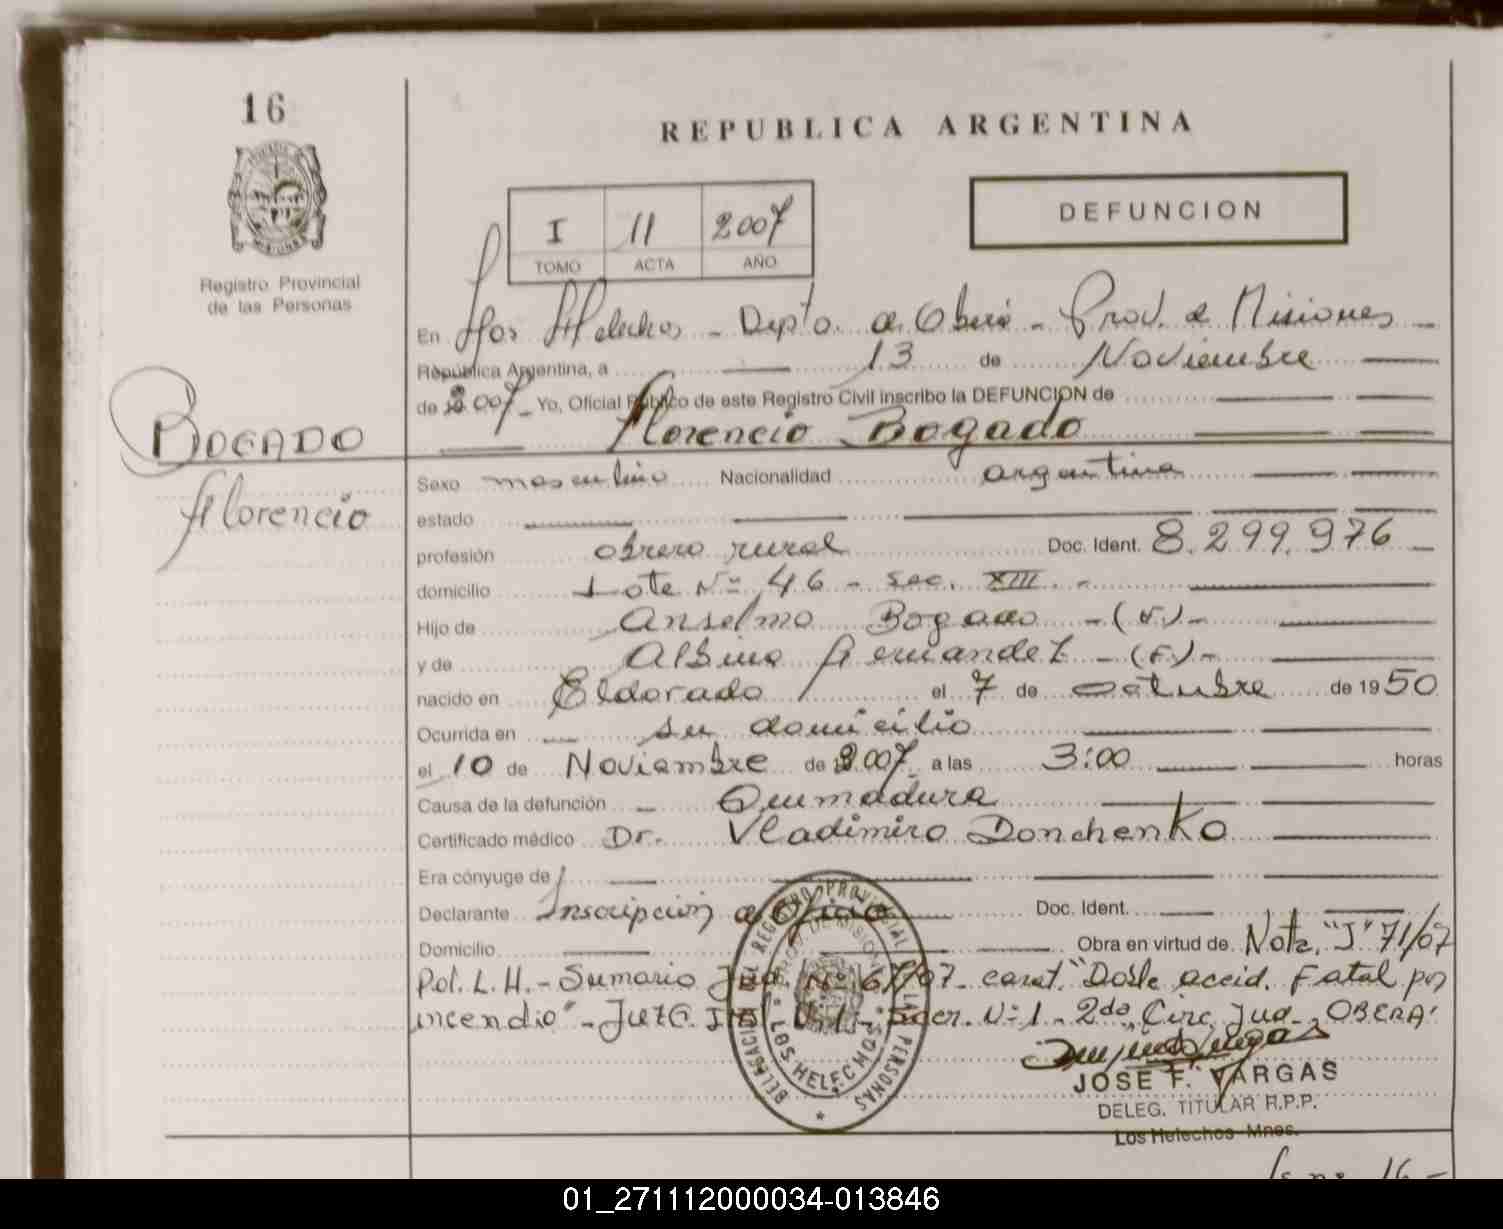 16
REPUBLICA ARGENTINA
Registro Provincial
de las Personas
I 11 2007
TOMO ACTA AÑO
DEFUNCION
En Los Helechos - Depto. de Oberá - Prov. de Misiones -
República Argentina, a 13 de Noviembre
de 2007 - Yo, Oficial Público de este Registro Civil inscribo la DEFUNCION de
Florencio Bogado
BOGADO
Florencio
Sexo masculino Nacionalidad argentina
estado
profesión obrero rural Doc. Ident. 8.299.976
domicilio Lote Nº 46 - Sec. XIII. -
Hijo de Anselmo Bogado - (F.) -
y de Albina Fernandez - (F.) -
nacido en Eldorado el 7 de octubre de 1950
Ocurrida en su domicilio
el 10 de Noviembre de 2007 a las 3:00 horas
Causa de la defunción - Quemadura
Certificado médico Dr. Vladimiro Donchenko
Era cónyuge de
Declarante Inscripción de Oficio Doc. Ident.
Domicilio Obra en virtud de Nota "J" 71/07
Pol. L.H. - Sumario Jud. Nº 67/07 - carat. "Doble accid. Fatal por
incendio" - Juzg. Nº 1 - Secr. Nº 1 - 2da Circ. Jud. OBERA
DELEGACION DEL REGISTRO PROVINCIAL DE LAS PERSONAS
PROV. DE MISIONES
LOS HELECHOS
JOSE F. VARGAS
DELEG. TITULAR R.P.P.
Los Helechos - Mnes.
01_271112000034-013846